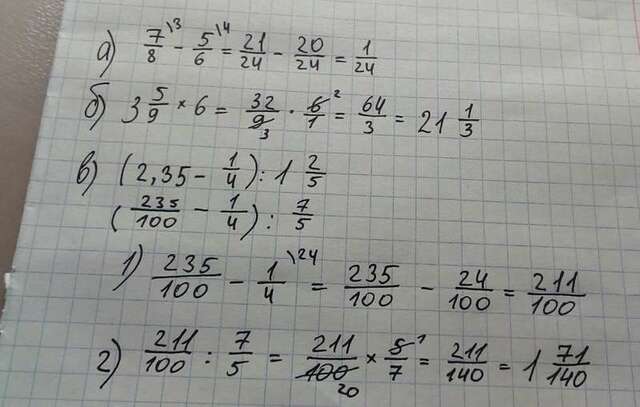 а) 7/8 \3 - 5/6 \4 = 21/24 - 20/24 = 1/24
б) 3 5/9 × 6 = 32/9 3 · 6/1 2 = 64/3 = 21 1/3
в) (2,35 - 1/4) : 1 2/5
(235/100 - 1/4) : 7/5
1) 235/100 - 1/4 \24 = 235/100 - 24/100 = 211/100
2) 211/100 : 7/5 = 211/100 20 × 5/7 1 = 211/140 = 1 71/140